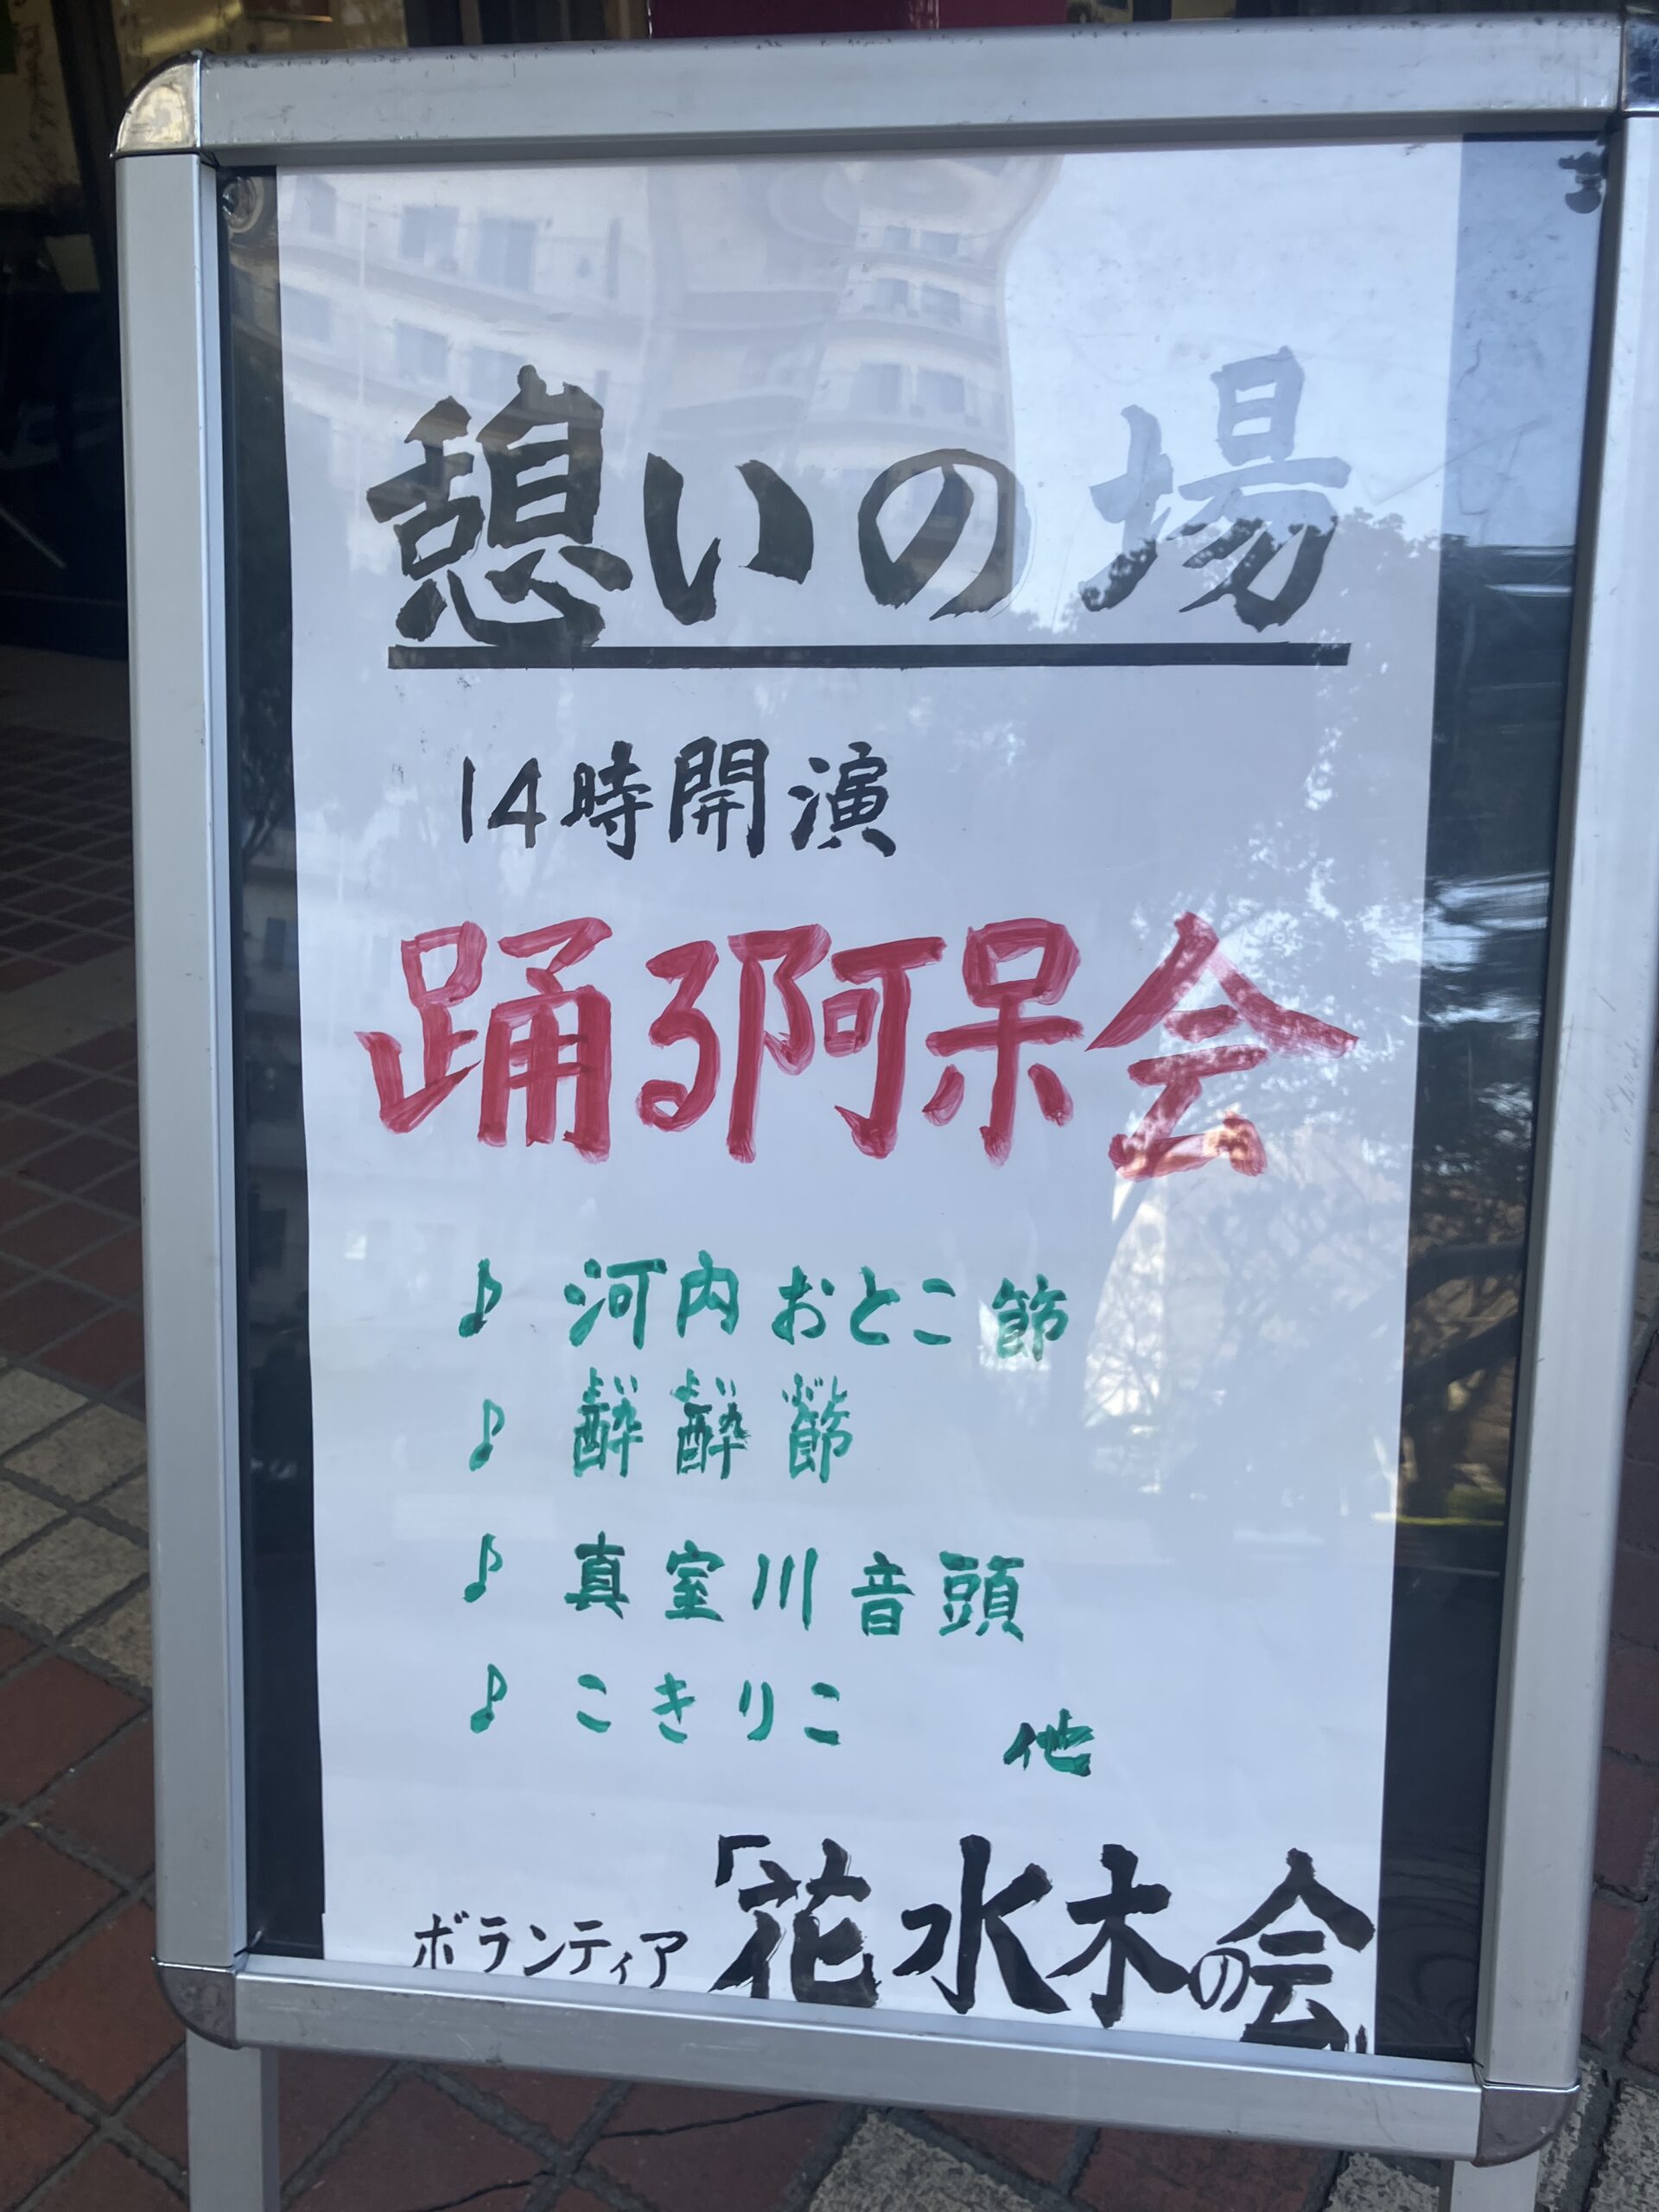 憩いの場
14時開演
踊る阿呆会
♪ 河内おとこ節
よい よい ぶし
♪ 酔酔節
♪ 真室川音頭
♪ こきりこ 他
ボランティア「花水木の会」